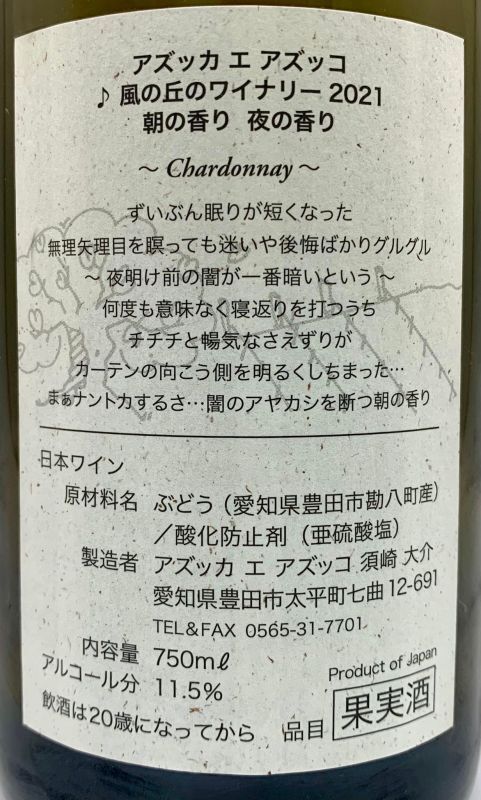 アズッカ エ アズッコ
♪ 風の丘のワイナリー 2021
朝の香り 夜の香り
～ Chardonnay ～
ずいぶん眠りが短くなった
無理矢理目を瞑っても迷いや後悔ばかりグルグル
～ 夜明け前の闇が一番暗いという ～
何度も意味なく寝返りを打つうち
チチチと暢気なさえずりが
カーテンの向こう側を明るくしちまった…
まぁナントカするさ…闇のアヤカシを断つ朝の香り
日本ワイン
原材料名 ぶどう（愛知県豊田市勘八町産）
／酸化防止剤（亜硫酸塩）
製造者 アズッカ エ アズッコ 須崎 大介
愛知県豊田市太平町七曲12-691
TEL＆FAX 0565-31-7701
内容量 750mℓ
アルコール分 11.5%
Product of Japan
飲酒は20歳になってから 品目 果実酒